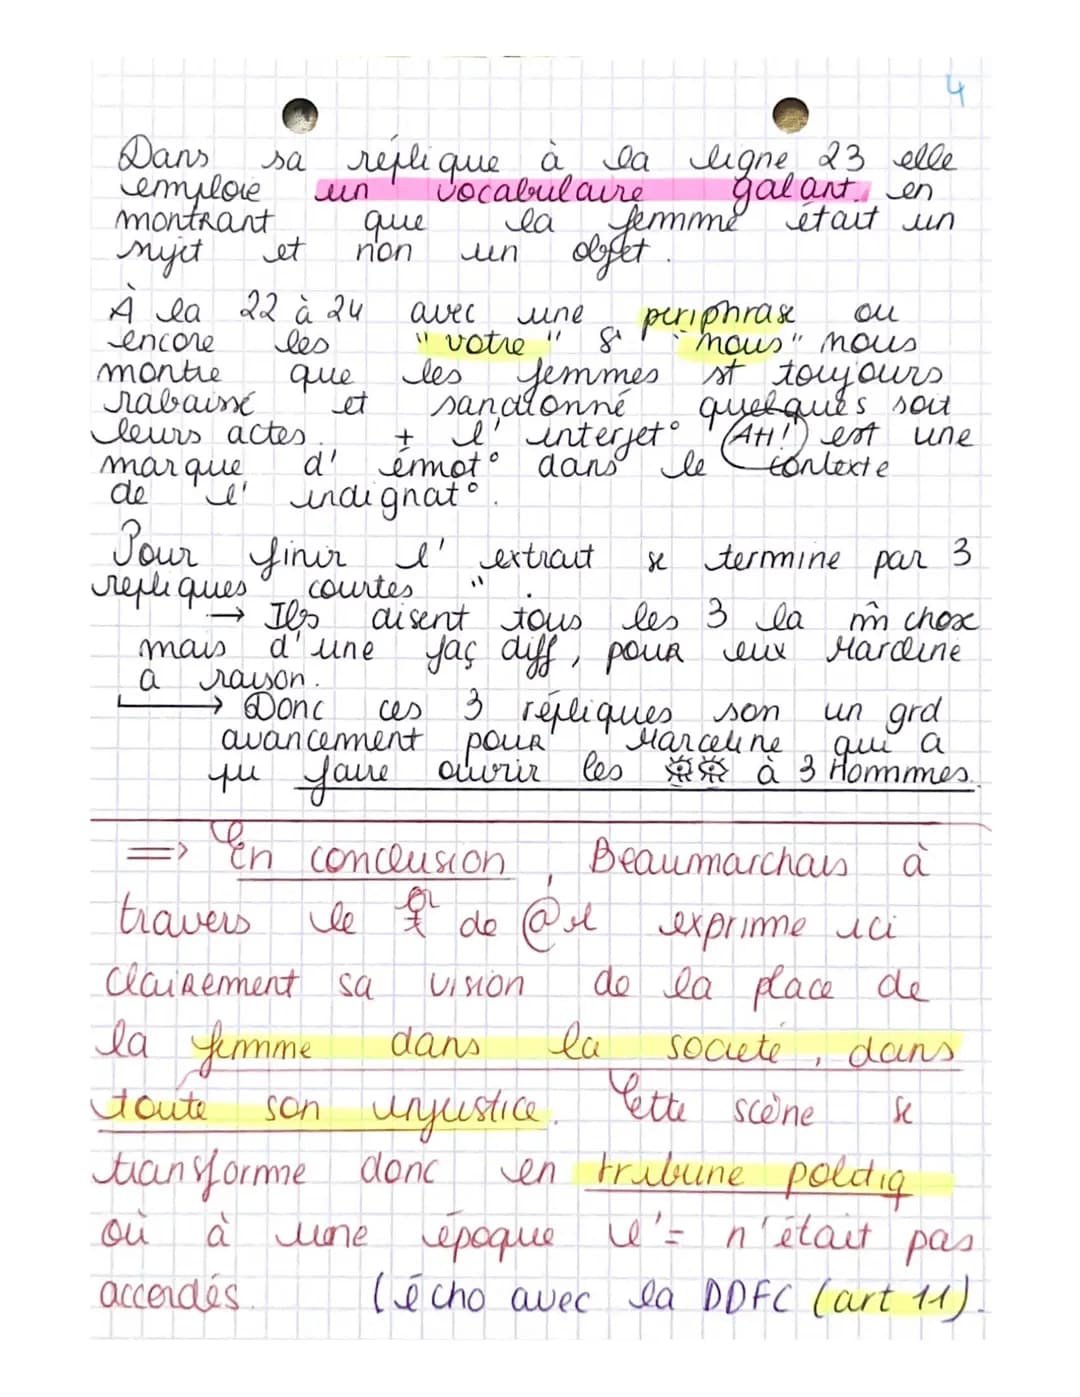 4
Dans sa réplique à la ligne 23 elle
emploie un vocabulaire galant. en
montrant que la femme était un
sujet et non un objet.
À la 22 à 24 avec une periphrase ou
encore les "votre" & "nous" nous
montre que les femmes st toujours
rabaissé et sanctionné quelques soit
leurs actes. + l'interject° (AH!) est une
marque d'émot° dans le contexte
de l'indignat°.
Pour finir l'extrait se termine par 3
repliques courtes ".
→ Ils disent tous les 3 la m̂ chose
mais d'une faç diff, pour eux Marceline
a raison.
→ Donc ces 3 répliques son un grd
avancement pour Marceline qui a
pu faire ouvrir les à 3 Hommes.
=> En conclusion, Beaumarchais à
travers le de @ el exprime ici
clairement sa vision de la place de
la femme dans la societé, dans
toute son unjustice. Cette scène se
transforme donc en tribune politiq
où à une époque l'= n'était pas
accordés. (écho avec la DDFC (art 11).